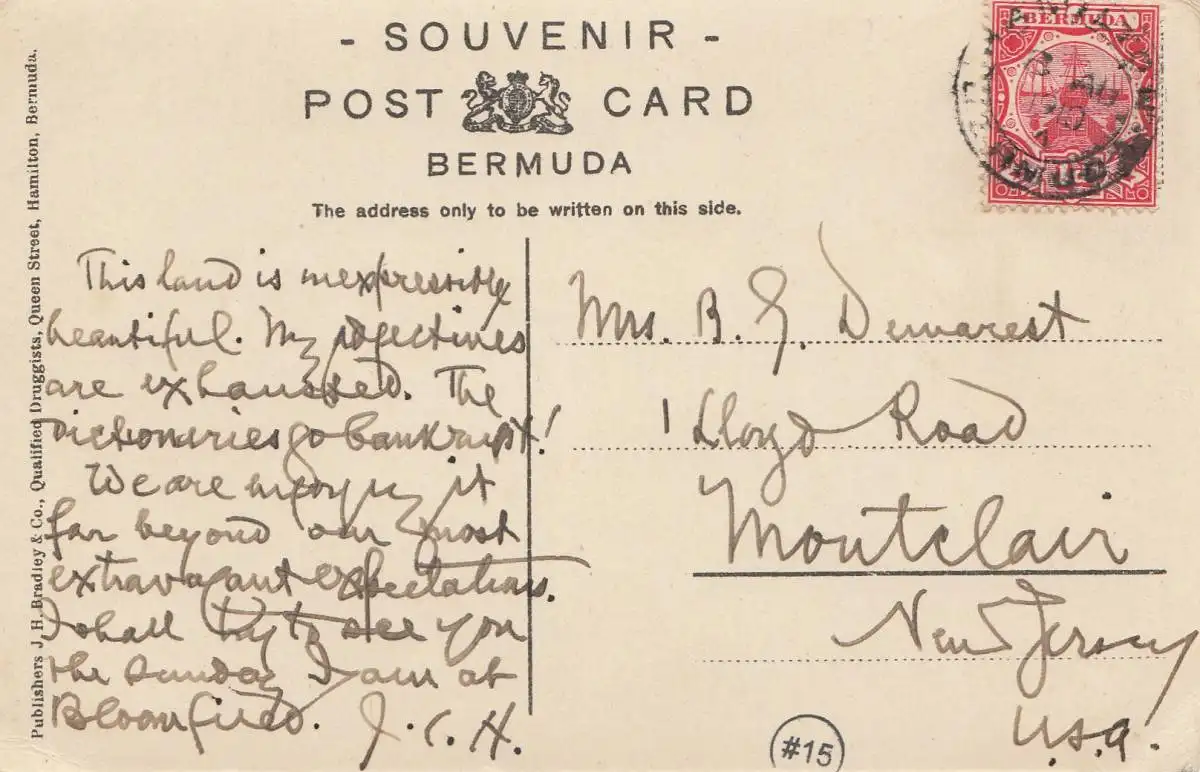 - SOUVENIR -
POST CARD
BERMUDA
The address only to be written on this side.
BERMUDA
Publishers J. H. Bradley & Co., Qualified Druggists, Queen Street, Hamilton, Bermuda.
This land is inexpressibly
beautiful. My adjectives
are exhausted. The
Dictionaries go bankrupt!
We are enjoying it
far beyond our most
extravagant expectations.
I shall try to see you
the Sunday I am at
Bloomfield. J. C. H.
Mrs. B. G. Demarest
1 Lloyd Road
Montclair
New Jersey
U.S.A.
#15